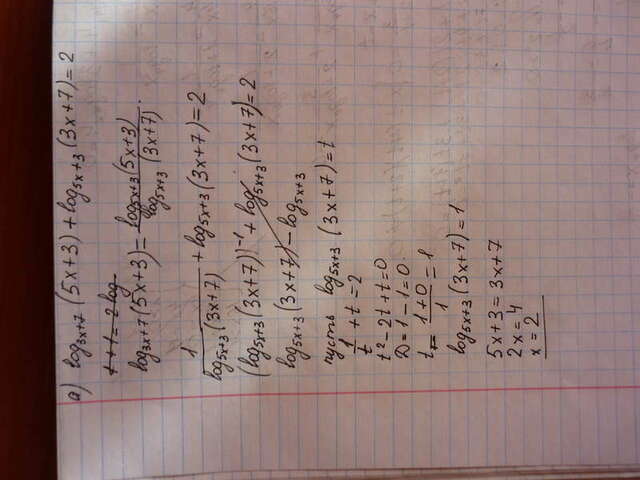 а) log₃ₓ₊₇(5x+3)+log₅ₓ₊₃(3x+7)=2
t+1=2log
log₃ₓ₊₇(5x+3)=log₅ₓ₊₃(5x+3)/log₅ₓ₊₃(3x+7).
1/log₅ₓ₊₃(3x+7)+log₅ₓ₊₃(3x+7)=2
(log₅ₓ₊₃(3x+7))⁻¹+log₅ₓ₊₃(3x+7)=2
log₅ₓ₊₃(3x+7)-log₅ₓ₊₃
пусть log₅ₓ₊₃(3x+7)=t
1/t+t=2
t²-2t+t=0
D=1-1=0.
t=(1+0)/1=1
log₅ₓ₊₃(3x+7)=1
5x+3=3x+7
2x=4
x=2